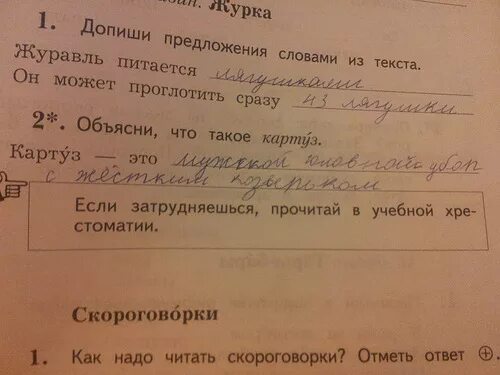 Журка
1. Допиши предложения словами из текста.
Журавль питается лягушками
Он может проглотить сразу 43 лягушки
2*. Объясни, что такое картуз.
Картуз — это мужской головной убор
с жёстким козырьком
Если затрудняешься, прочитай в учебной хре-
стоматии.
Скороговорки
1. Как надо читать скороговорки? Отметь ответ ⊕.